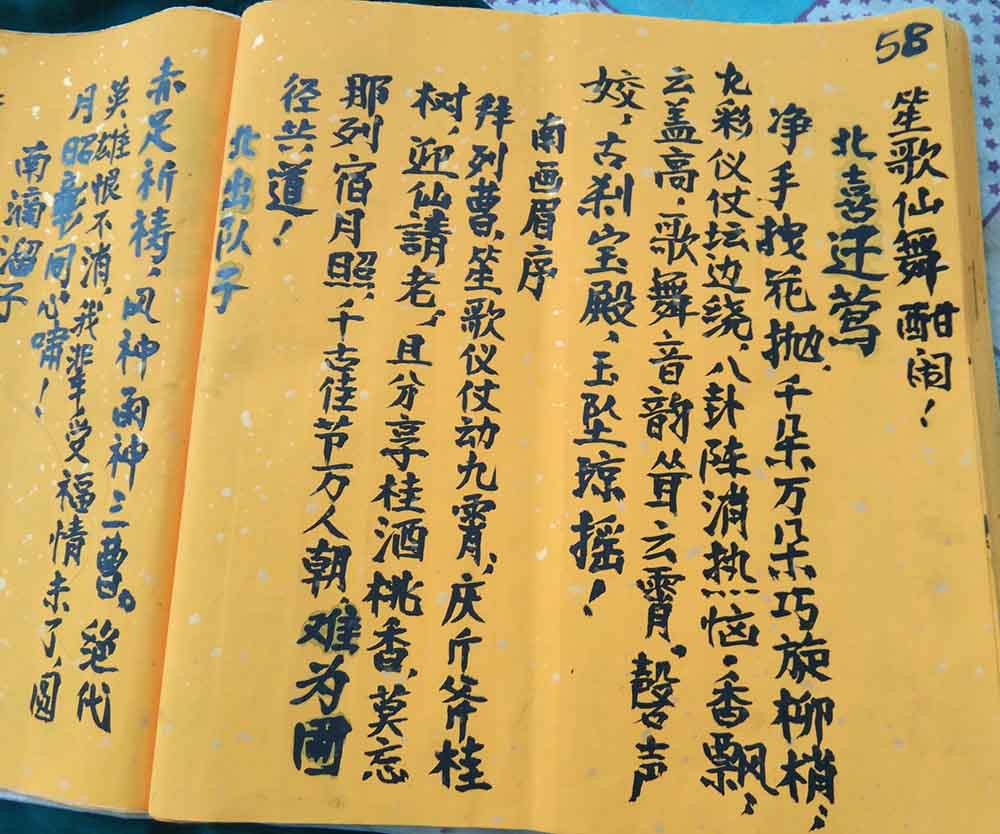 58
笙歌仙舞酣闹！
北喜迁莺
净手拽花抛，千朵万朵巧旋柳梢，
九彩仪仗坛边绕，八卦阵消热恼，香飘，
云盖高，歌舞音韵耸云霄，磬声
姣，古刹宝殿，玉坠琼摇！
南画眉序
拜列曹，笙歌仪仗动九霄，庆斤斧桂
树，迎仙請老，且分享桂酒桃香，莫忘
那列宿月照，千古佳节万人朝，难为圖
径共道！
北出队子
赤足祈祷，风神雨神三曹。绝代
英雄恨不消，我辈受福情未了，圆
月昭彰同心啸！
南滴溜子